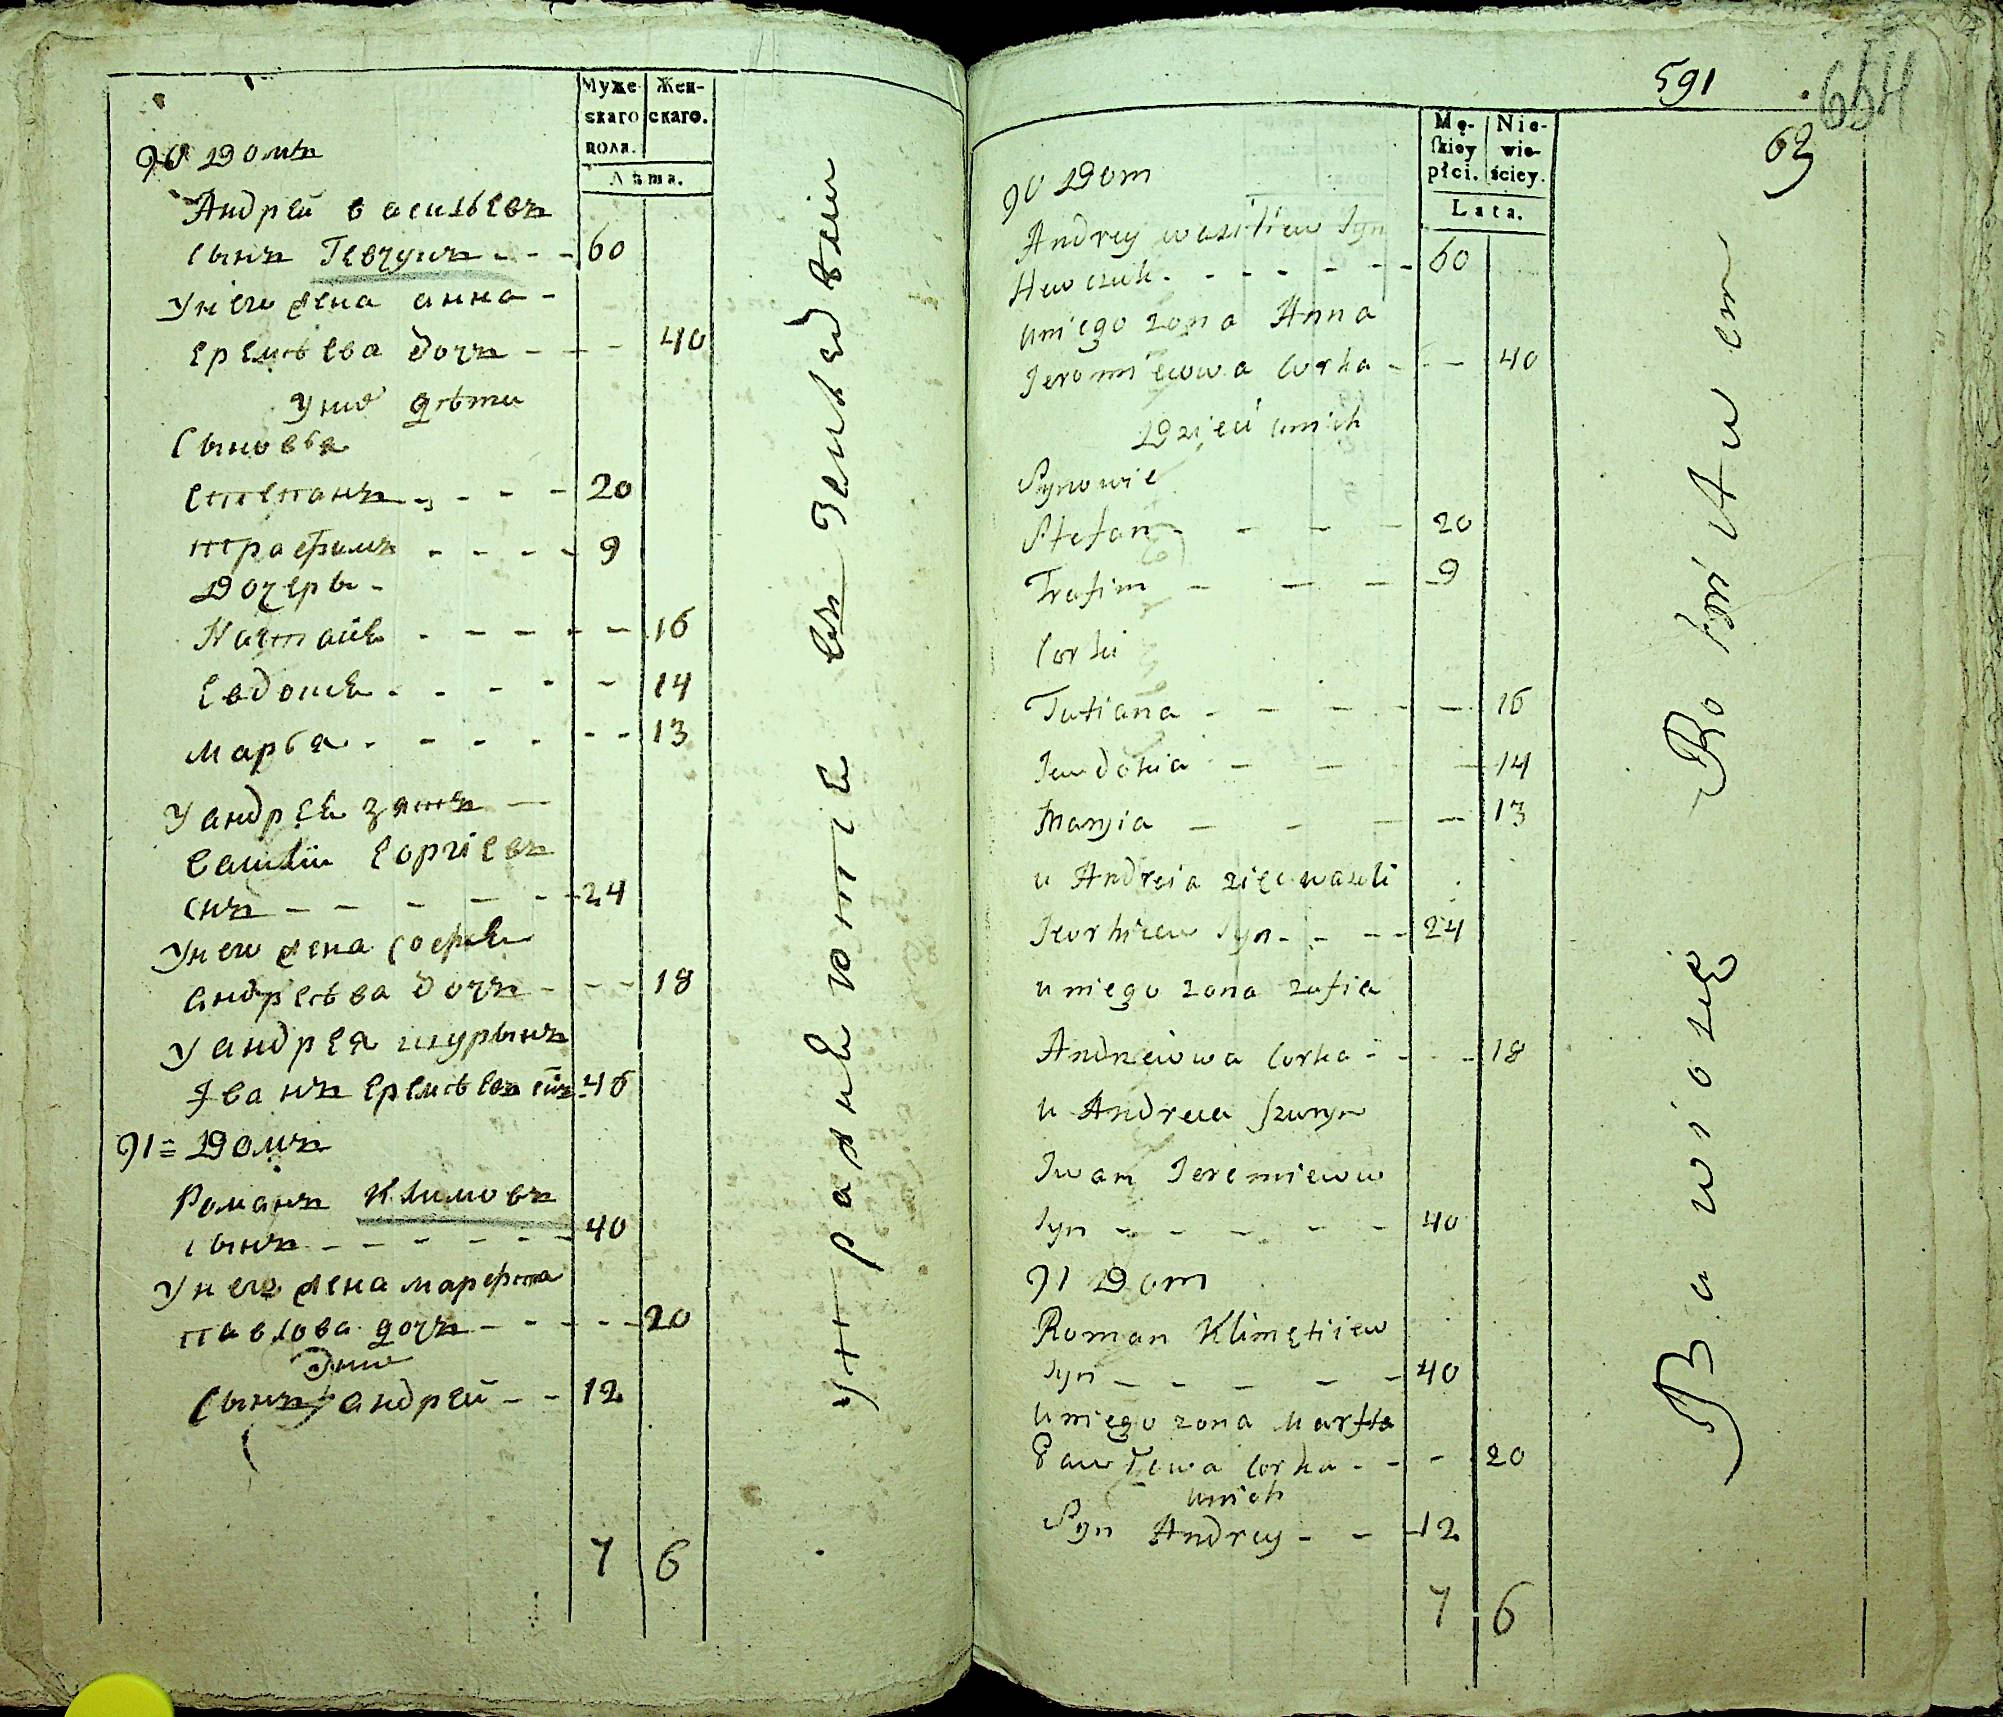 Муже
скаго
пола.
Жен-
скаго.
Лѣта.
90 Домъ
Андрей васильевъ
сынъ Гевчукъ - - - 60
У него жена анна -
еремѣева дочъ - - - 40
У них дѣти
Сыновья
степанъ - - - - 20
трафимъ - - - - 9
Дочеры -
Наталя - - - - - - 16
Евдокия - - - - - 14
Марья - - - - - - - 13
У андрея зять —
Василии Еоргіевъ
снъ - - - - - - 24
У него жена софия
андреѣва дочъ - - - 18
У андрея шурынъ
Іванъ еремѣевъ снъ - 40
91 = Домъ
Романъ Климовъ
сынъ - - - - - - 40
У него жена марфта
павлова дочъ - - - - - 20
У них
Сынъ андрей - - 12
7 6
У+ разне юте въ земледелии
591
654
63
Mę-
skiey
płci.
Nie-
wie-
ściey.
Lata.
90 Dom
Andrey wasiliew Syn
Hewczuk - - - - - - 60
u niego zona Anna
Jeremiewowa Corka - - - 40
Dzieci unich
Synowie
Stefan - - - - 20
Trafim - - - - 9
Corki
Tatiana - - - - - 16
Jewdokia - - - - 14
Maryia - - - - 13
u Andreia zięc wasili
Jeorhiew Syn - - - - 24
u niego zona zofia
Andreiowa Corka - - - - 18
u Andreia szuryn
Iwan Jeremiewow
Syn - - - - - - 40
91 Dom
Roman Klimętiiew
Syn - - - - - 40
u niego zona Marfta
Pawłowa Corka - - - 20
unich
Syn Andrey - - - 12
7 6
Bawio się Rolnitwem